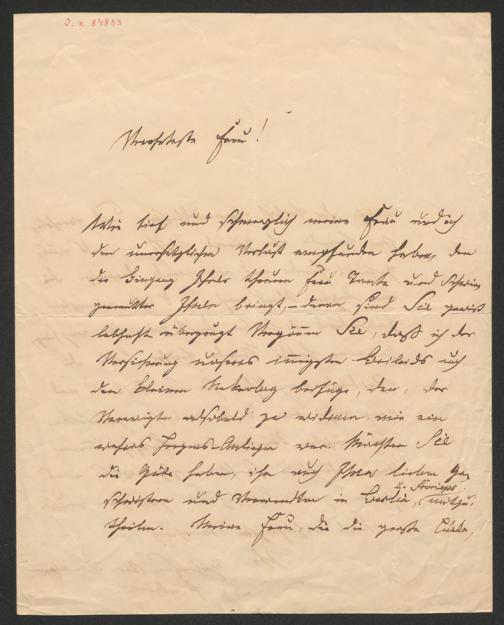 J. N. 84833
Verehrteste Frau!
Wie tief und schmerzlich meine Frau und ich
den unersetzlichen Verlust empfunden haben, den
der Hingang Ihrer theuren Frau Tante und Schwie
germutter Ihnen bringt, – davon sind Sie gewiß
lebhaft überzeugt. Vergönnen Sie, daß ich der
Versicherung unseres innigsten Beileids auch
den kleinen Nekrolog beifüge, den, der
Verewigten alsobald zu widmen mir ein
wahres Herzens-Anliegen war. Möchten Sie
die Güte haben, ihn auch Ihren lieben Ge
schwistern und Verwandten in Berlin, mitzu
theilen. Meine Frau, die die große